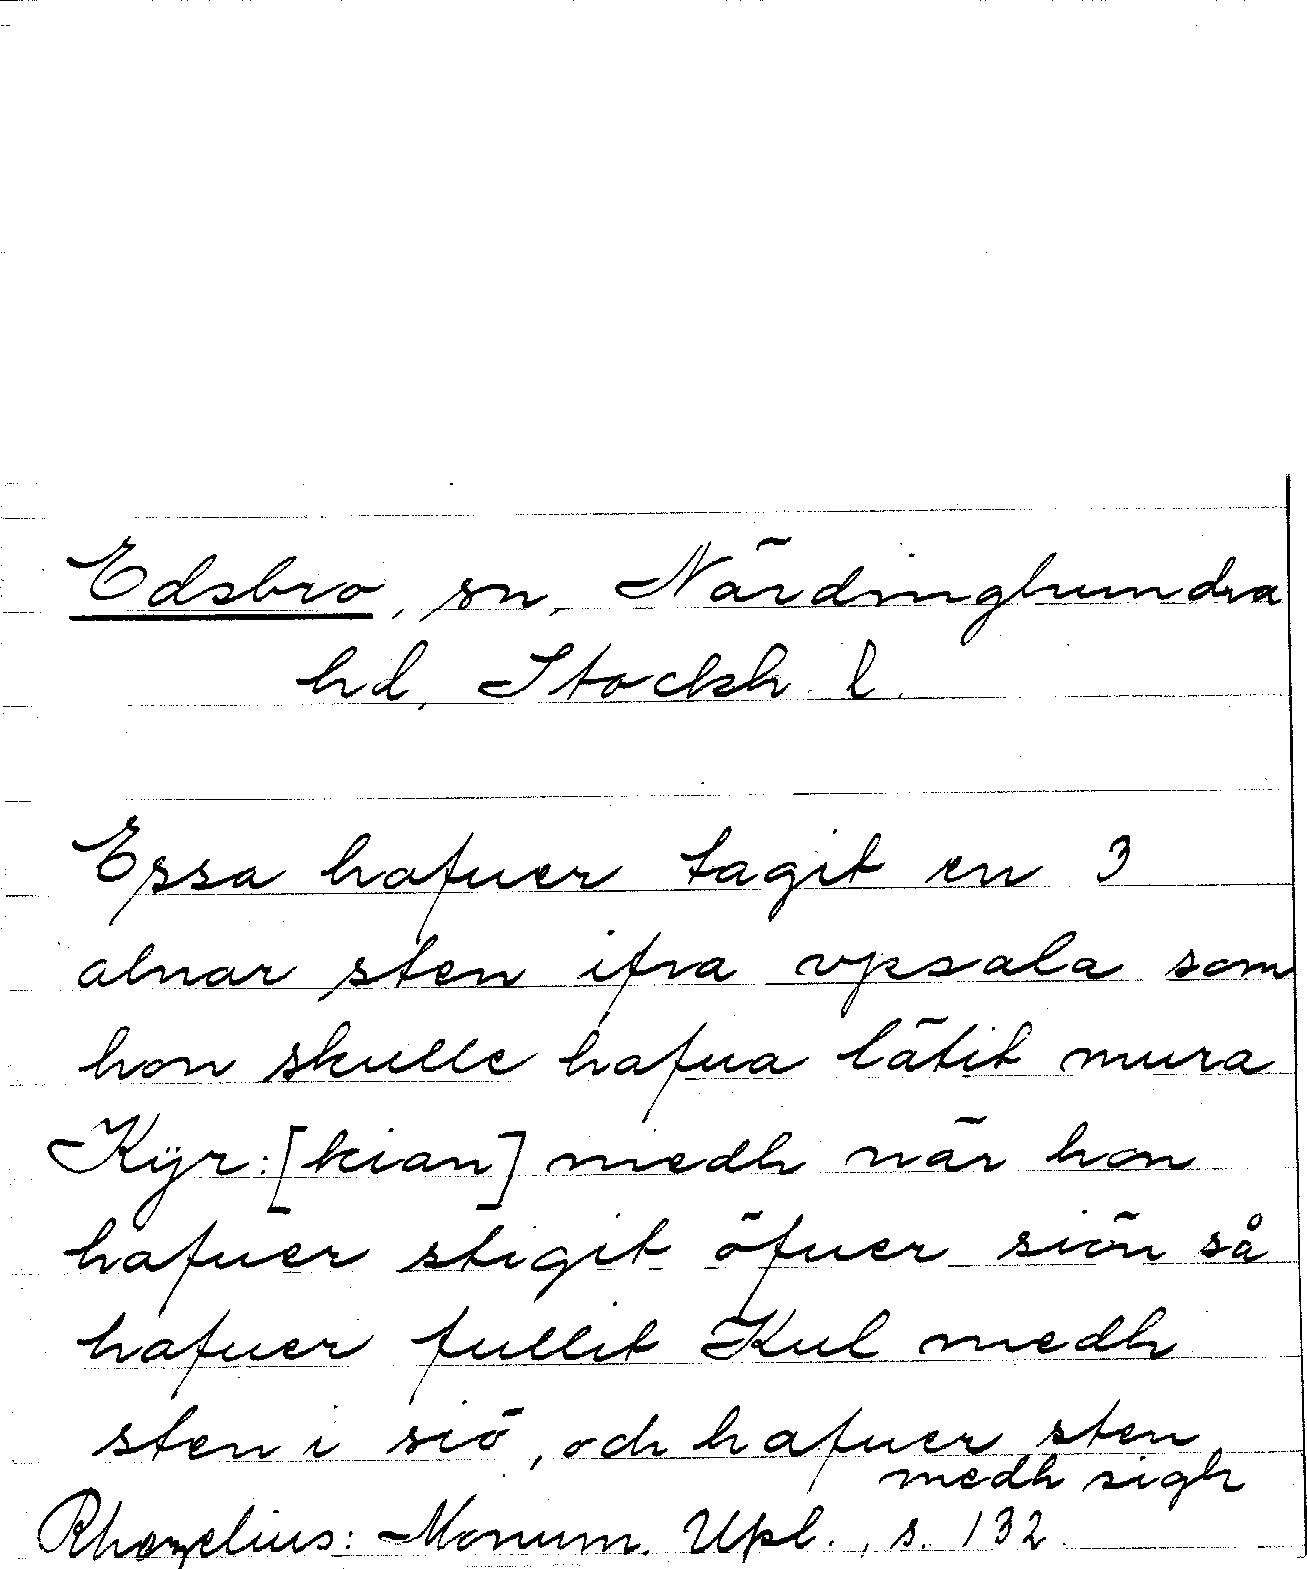 Edsbro, sn, Närdinghundra
hd, Stockh. l.
Essa hafuer tagit en 3
alnar sten ifra vpsala som
hon skulle hafua lätit mura
Kÿr:[kian] medh när hon
hafuer stigit öfuer siön så
hafuer fullit Kul medh
sten i siö, och hafuer sten
medh sigh
Rhezelius: Monum. Upl., s. 132